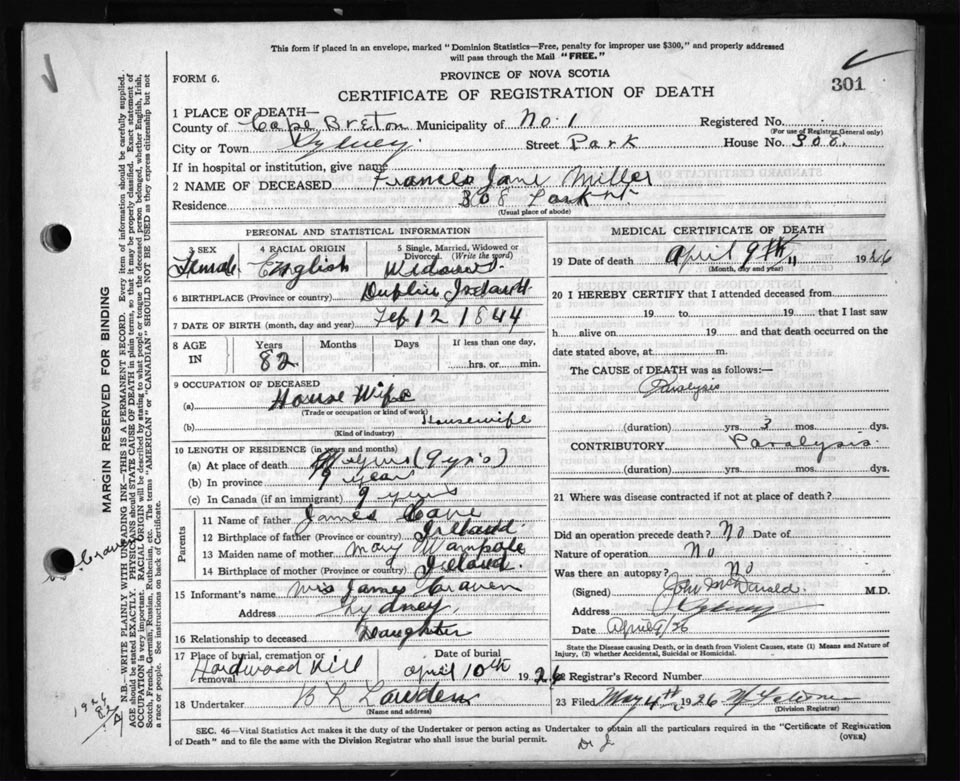 This form if placed in an envelope, marked "Dominion Statistics—Free, penalty for improper use $300," and properly addressed
will pass through the Mail "FREE."
FORM 6.
PROVINCE OF NOVA SCOTIA
301
CERTIFICATE OF REGISTRATION OF DEATH
1 PLACE OF DEATH—
County of Cape Breton Municipality of No. 1 Registered No.
(For use of Registrar General only)
City or Town Sydney Street Park House No. 308.
If in hospital or institution, give name
2 NAME OF DECEASED Frances Jane Miller
Residence 308 Park St
(Usual place of abode)
PERSONAL AND STATISTICAL INFORMATION
3 SEX 4 RACIAL ORIGIN 5 Single, Married, Widowed or
Divorced. (Write the word)
Female English Widow
6 BIRTHPLACE (Province or country) Dublin Ireland
7 DATE OF BIRTH (month, day and year) Feb 12 1844
8 AGE IN Years Months Days If less than one day,
82 hrs. or min.
9 OCCUPATION OF DECEASED
(a) House Wife
(Trade or occupation or kind of work)
(b) Housewife
(Kind of industry)
10 LENGTH OF RESIDENCE (in years and months)
(a) At place of death (9 yrs)
(b) In province 9 years
(c) In Canada (if an immigrant) 9 years
Parents
11 Name of father James
12 Birthplace of father (Province or country) Ireland.
13 Maiden name of mother Mary
14 Birthplace of mother (Province or country) Ireland.
15 Informant's name Mrs James Craven
Address Sydney
16 Relationship to deceased Daughter
17 Place of burial, cremation or removal Date of burial
Hardwood Hill April 10th 1926
18 Undertaker
(Name and address)
MEDICAL CERTIFICATE OF DEATH
19 Date of death April 9th 1926
(Month, day and year)
20 I HEREBY CERTIFY that I attended deceased from
19 to 19 that I last saw
h alive on 19 and that death occurred on the
date stated above, at m.
The CAUSE of DEATH was as follows:—
Paralysis
(duration) yrs. 3 mos. dys.
CONTRIBUTORY Paralysis.
(duration) yrs. mos. dys.
21 Where was disease contracted if not at place of death?
Did an operation precede death? No Date of
Nature of operation No
Was there an autopsy? No
(Signed) M.D.
Address Sydney
Date April 9/26
State the Disease causing Death, or in death from Violent Causes, state (1) Means and Nature of
Injury, (2) whether Accidental, Suicidal or Homicidal.
22 Registrar's Record Number
23 Filed May 4th 1926
(Division Registrar)
SEC. 46—Vital Statistics Act makes it the duty of the Undertaker or person acting as Undertaker to obtain all the particulars required in the "Certificate of Registration
of Death" and to file the same with the Division Registrar who shall issue the burial permit.
(OVER)
MARGIN RESERVED FOR BINDING
N.B.—WRITE PLAINLY WITH UNFADING INK—THIS IS A PERMANENT RECORD. Every item of information should be carefully supplied.
AGE should be stated EXACTLY. PHYSICIANS should STATE CAUSE OF DEATH in plain terms, so that it may be properly classified. Exact statement of
OCCUPATION is very important. RACIAL ORIGIN will be described by stating to what people or tongue the deceased person belonged, whether English, Irish,
Scotch, French, German, Russian, Ruthenian, etc. The terms "AMERICAN" or "CANADIAN" SHOULD NOT BE USED as they express citizenship but not
a race or people. See instructions on back of Certificate.
1926
82